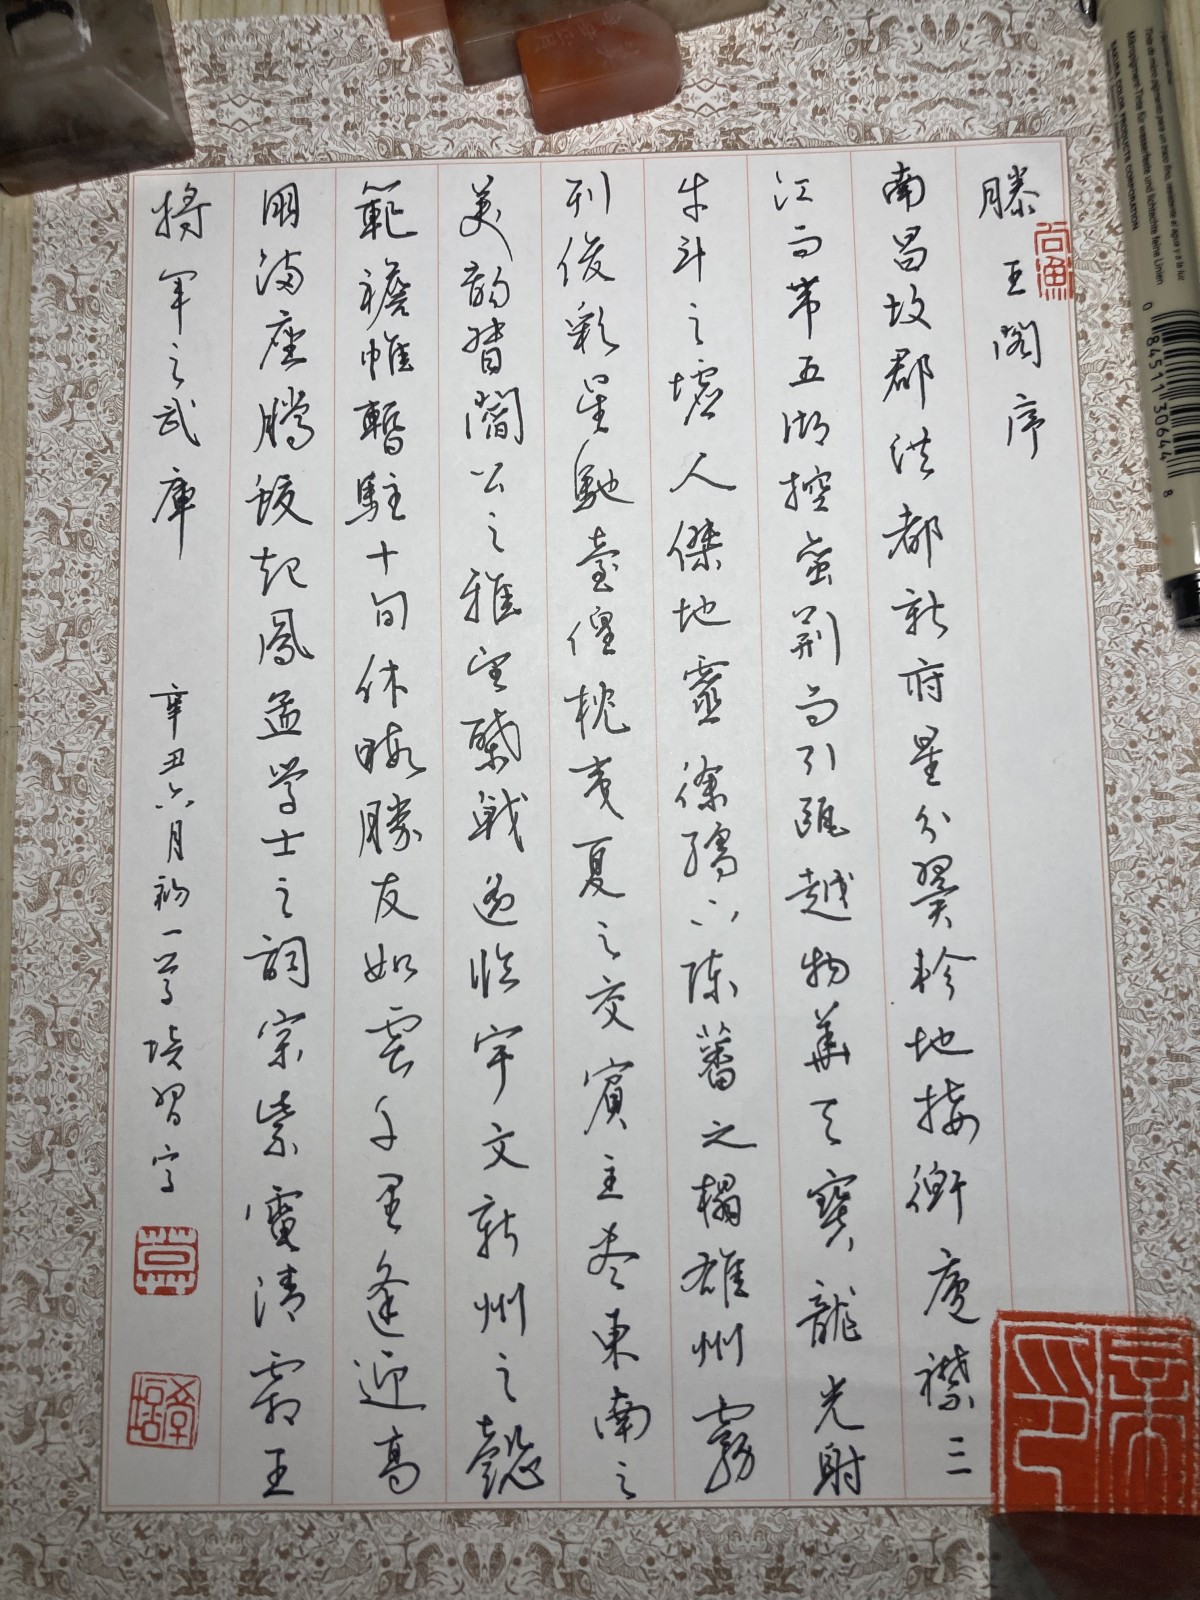 滕王閣序
南昌故郡洪都新府星分翼軫地接衡廬襟三
江而帶五湖控蠻荊而引甌越物華天寶龍光射
牛斗之墟人傑地靈徐孺下陳蕃之榻雄州霧
列俊彩星馳臺隍枕夷夏之交賓主盡東南之
美都督閻公之雅望棨戟遙臨宇文新州之懿
範襜帷暫駐十旬休暇勝友如雲千里逢迎高
朋滿座騰蛟起鳳孟學士之詞宗紫電清霜王
將軍之武庫
辛丑六月初一習字
SAKURA COLOR PRODUCTS CORPORATION
0 84511 30644 8